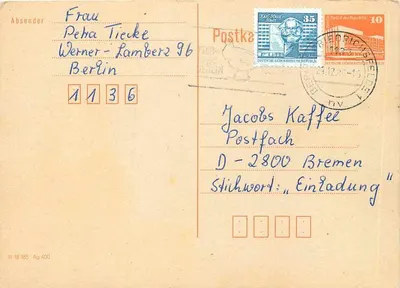 Absender
Frau
Petra Tiecke
Werner-Lamberz 96
Berlin
1 1 3 6
Postka
35
10
Jacobs Kaffee
Postfach
D-2800 Bremen
Stichwort: „Einladung"